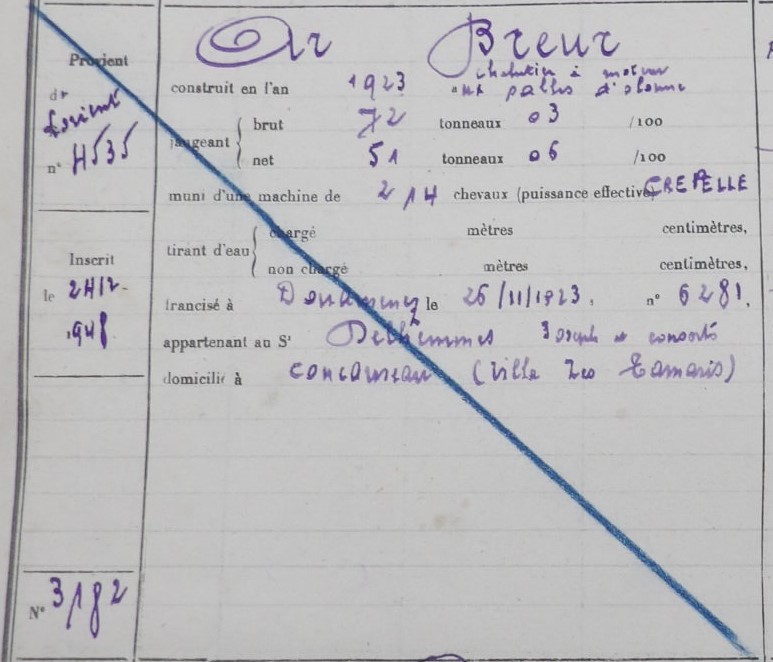 Ar Breur
Provient
de
Lorient
n° 4535
Inscrit
le 24/2-
1948
N° 3182
construit en l'an 1923 chalutier à moteur
aux sables d'olonne
jaugeant { brut 72 tonneaux 03 /100
net 51 tonneaux 06 /100
muni d'une machine de 214 chevaux (puissance effective) CREPELLE
tirant d'eau { chargé mètres centimètres,
non chargé mètres centimètres,
francisé à Douarnenez le 26/11/1923, n° 6281,
appartenant au Sr Delhemmes Joseph et consorts
domicilié à Concarneau (Villa Les Tamaris)